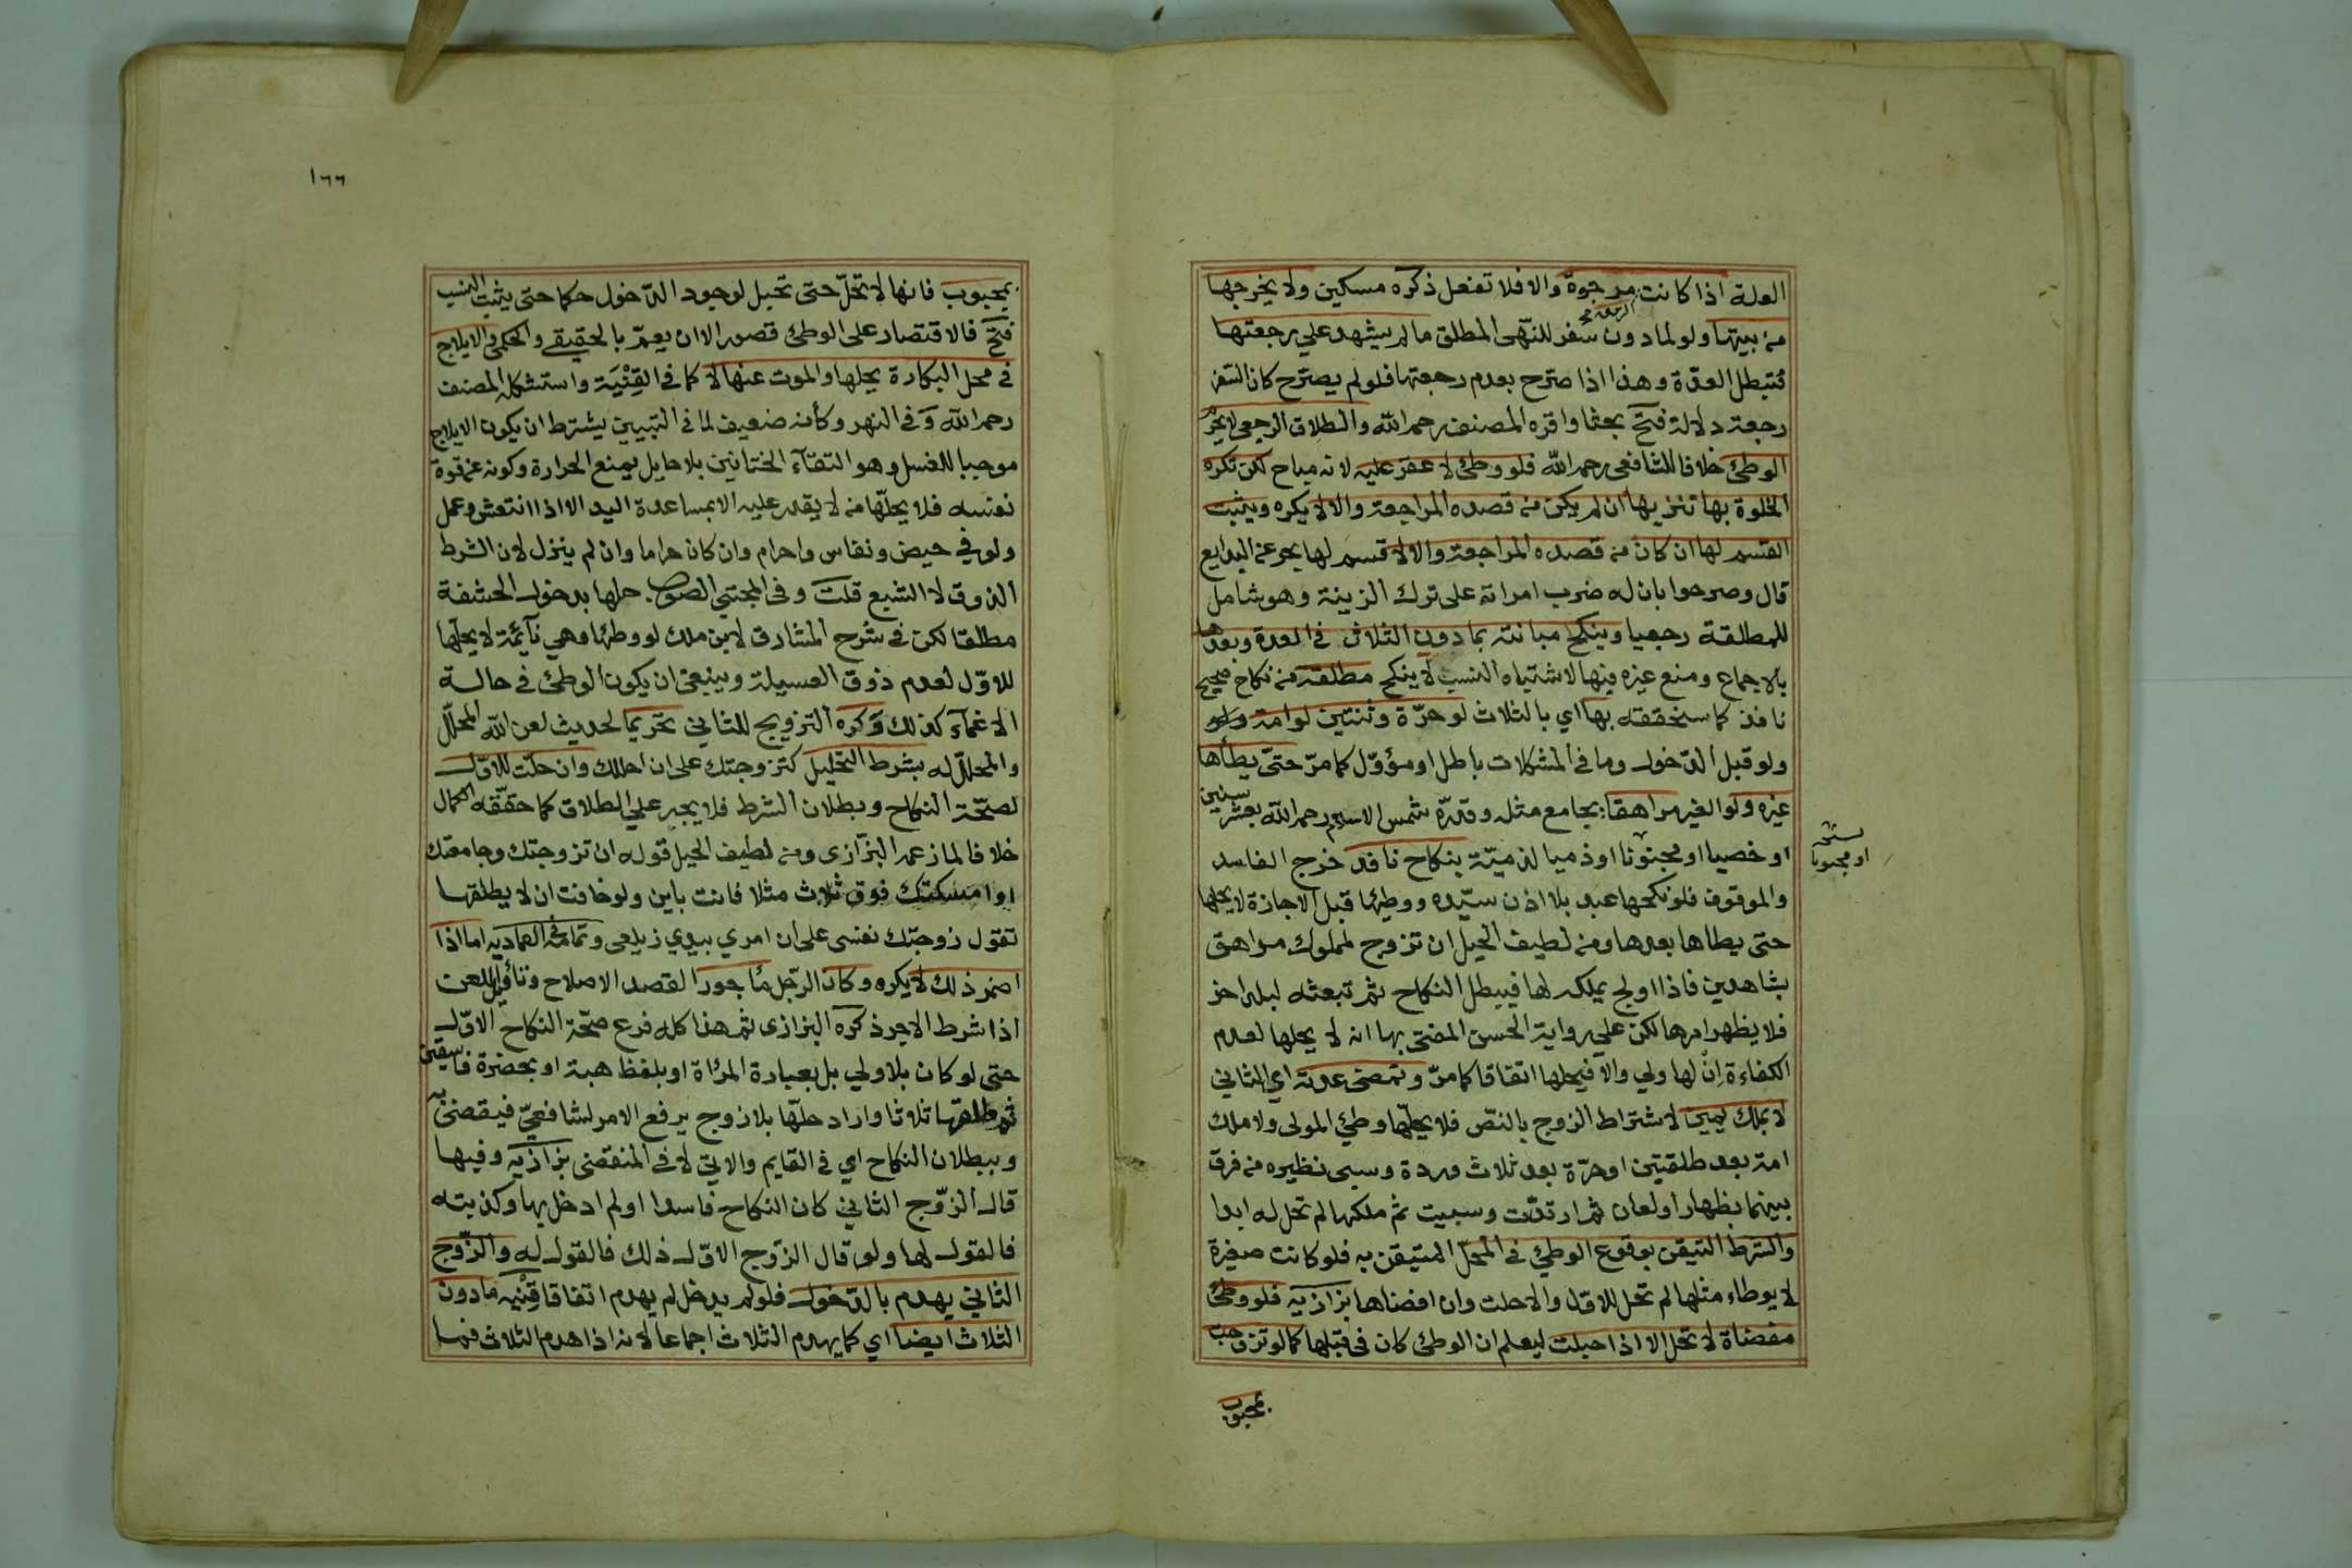 العلة اذا كانت مرجوة والا فلا تفعل ذكره مسكين ولا يخرجها
من بيتها ولو لما دون سفر للنهى المطلق ما لم يشهد على رجعتها
فتبطل العدة وهذا اذا صرح بعدم رجعتها فلو لم يصرح كان السفر
رجعة دلالة فتح بحثا واقره المصنف رحمه الله والطلاق الرجعى لا يحرم
الوطئ خلافا للشافعى رحمه الله فلو وطئ لا عقر عليه لانه مباح لكن تكره
الخلوة بها تنزيها ان لم يكن من قصده المراجعة والا لا يكره ويثبت
القسم لها ان كان من قصده المراجعة والا لا قسم لها بحر عن البدايع
قال وصرحوا بان له ضرب امراته على ترك الزينة وهو شامل
للمطلقة رجعيا وينكح مبانته بما دون الثلاث فى العدة وبعدها
بالاجماع ومنع غيره فيها لاشتباه النسب لا ينكح مطلقة من نكاح صحيح
نافذ كما سنحققه بها اي بالثلاث لو حرة وثنتين لو امة
ولو قبل الدخول وما فى المشكلات باطل او مؤول كما مر حتى يطأها
غيره ولو الغير مراهقا يجامع مثله وقدره شمس الاسلام رحمه الله بعشر سنين
او خصيا او مجنونا او ذميا لذمية بنكاح نافذ خرج الفاسد
او مجبوبا
والموقوف فلو نكحها عبد بلا اذن سيده ووطئها قبل الاجازة لا يحلها
حتى يطاها بعدها ومن لطيف الحيل ان تزوج لمملوك مراهق
بشاهدين فاذا اولج يملكه لها فيبطل النكاح ثم تبعثه لبلد اخر
فلا يظهر امرها لكن على رواية الحسن المفتى بها انه لا يحلها لعدم
الكفاءة ان لها ولي والا فيحلها اتفاقا كما مر وتمضى عدته اي الثاني
لا بملك يمين لاشتراط الزوج بالنص فلا يحلها وطئ المولى ولا ملك
امة بعد طلقتين او حرة بعد ثلاث وردة وسبى نظيره من فرق
بينهما بظهار او لعان ثم ارتدت وسبيت ثم ملكها لم تحل له ابدا
والشرط التيقن بوقوع الوطئ فى المحل المتيقن به فلو كانت صغيرة
لا يوطاء مثلها لم تحل للاول والا حلت وان افضاها بزازيه فلو وطئ
مفضاة لا تحل الا اذا حبلت ليعلم ان الوطئ كان فى قبلها كما لو تزوجت
بمجبوب
١٦٦
بمجبوب فانها لا تحل حتى تحبل لوجود الدخول حكما حتى يثبت النسب
فتح فالاقتصار على الوطئ قصور الا ان يعم بالحقيقى والحكمى والايلاج
فى محل البكارة يحلها والموت عنها لا كما فى القنية واستشكله المصنف
رحمه الله وفى النهر وكأنه ضعيف لما فى التبيين يشترط ان يكون الايلاج
موجبا للغسل وهو التقاء الختانين بلا حايل يمنع الحرارة وكونه عن قوة
نفسه فلا يحلها من لا يقدر عليه الا بمساعدة اليد الا اذا انتعش وعمل
ولو في حيض ونفاس واحرام وان كان حراما وان لم ينزل لان الشرط
الذوق لا الشبع قلت وفى المجتبى الصواب حلها بدخول الحشفة
مطلقا لكن فى شرح المشارق لابن ملك لو وطئها وهي نائمة لا يحلها
للاول لعدم ذوق العسيلة وينبغى ان يكون الوطئ فى حالة
الاغماء كذلك وكره التزويج للثاني تحريما لحديث لعن الله المحلل
والمحلل له بشرط التحليل كتزوجتك على ان احللك وان حلت للاول
لصحة النكاح وبطلان الشرط فلا يجبر على الطلاق كما حققه الكمال
خلافا لما زعمه البزازى ومن لطيف الحيل قوله ان تزوجتك وجامعتك
او امسكتك فوق ثلاث مثلا فانت باين ولو خافت ان لا يطلقها
تقول زوجتك نفسى على ان امري بيدي زيلعى وتمامه فى العماديه اما اذا
اضمر ذلك لا يكره وكان الرجل مأجورا لقصد الاصلاح وتأويل اللعن
اذا شرط الاجر ذكره البزازى ثم هذا كله فرع صحة النكاح الاول
حتى لو كان بلا ولي بل بعبارة المرأة او بلفظ هبة او بحضرة فاسقين
ثم طلقها ثلاثا واراد حلها بلا زوج يرفع الامر لشافعي فيقضى به
وببطلان النكاح اي فى القايم والاتي لا فى المنقضى بزازيه وفيها
قال الزوج الثاني كان النكاح فاسدا او لم ادخل بها وكذبته
فالقول لها ولو قال الزوج الاول ذلك فالقول له والزوج
الثاني يهدم بالدخول فلو لم يدخل لم يهدم اتفاقا قنيه مادون
الثلاث ايضا اي كما يهدم الثلاث اجماعا لانه اذا هدم الثلاث فما